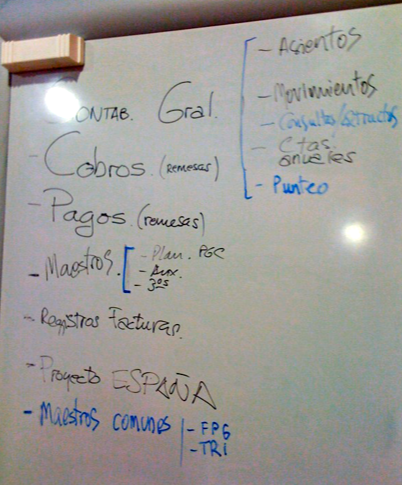 - Contab. Gral.
- Asientos
- Movimientos
- Consultas/extractos
- Ctas. anuales
- Punteo
- Cobros. (remesas)
- Pagos. (remesas)
- Maestros.
- Plan. PGC
- Aux.
- 3os
- Registros Facturas.
- Proyecto ESPAÑA
- Maestros comunes
- FPG
- TRI